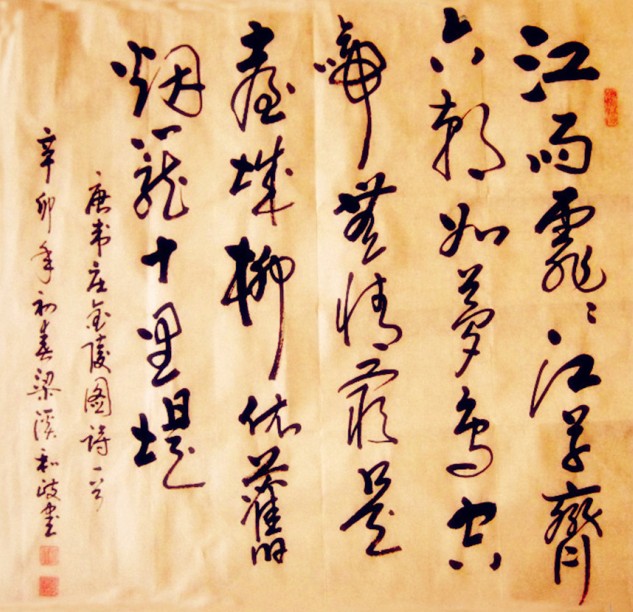 江雨霏〻江草齊
六朝如夢鳥空
啼無情最是
臺城柳依舊
烟籠十里堤
唐韦庄金陵图诗一首
辛卯年初春梁溪和岐书